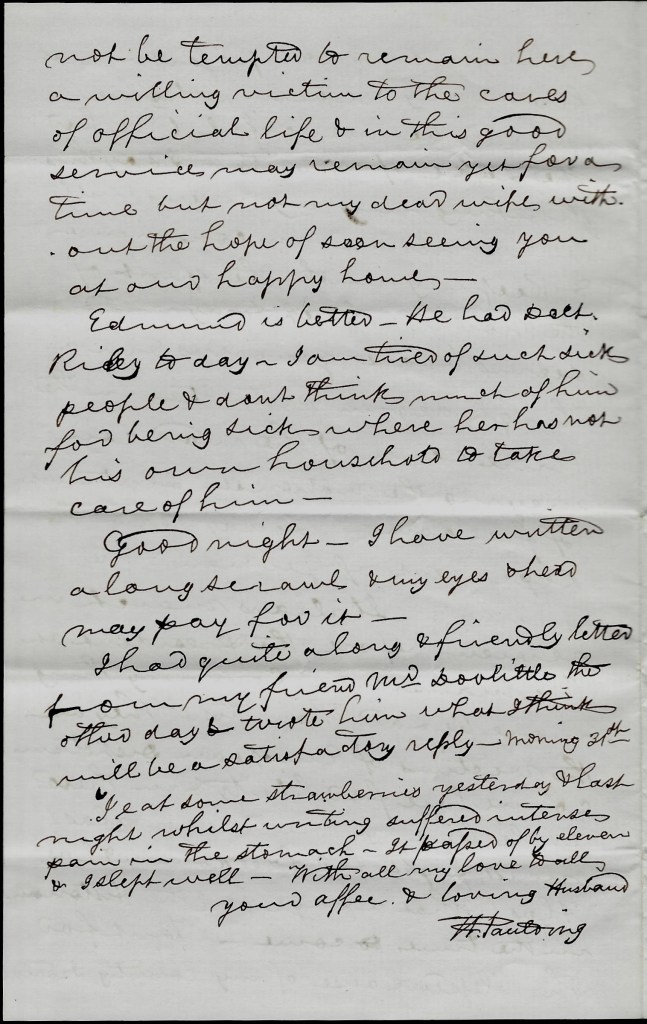 not be tempted to remain here
a willing victim to the cares
of official life & in this good
service may remain yet for a
time but not my dear wife with-
-out the hope of soon seeing you
at our happy home —
Edmund is better — He had Doct.
Riley to day — I am tired of such sick
people & dont think much of him
for being sick where he has not
his own household to take
care of him —
Good night — I have written
a long scrawl & my eyes & head
may pay for it —
I had quite a long & friendly letter
from my friend Mr Doolittle the
other day & wrote him what I think
will be a satisfactory reply — Morning 31st
I eat some strawberries yesterday & last
night whilst writing suffered intense
pain in the stomach — It passed off by eleven
& I slept well — With all my love to all
your affec. & loving Husband
H. Paulding